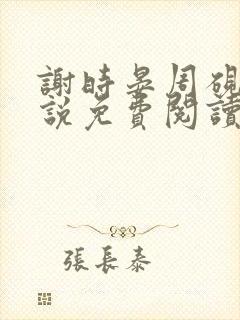 謝時晏周硯
説免費閱讀
張長泰